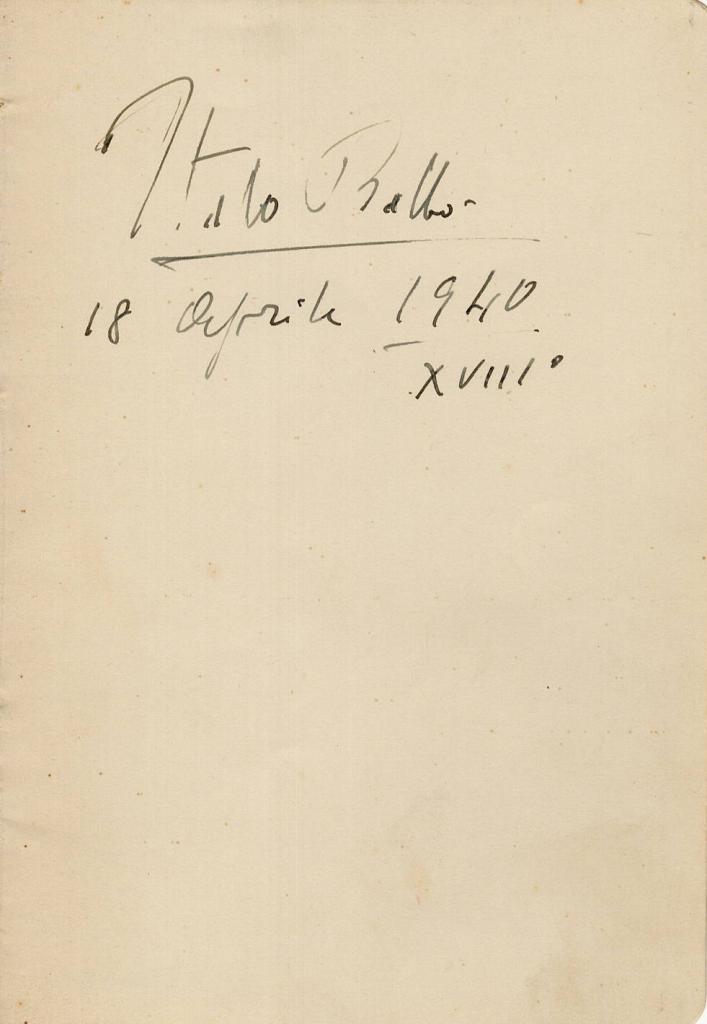 Italo Balbo
18 Aprile 1940
XVIII°